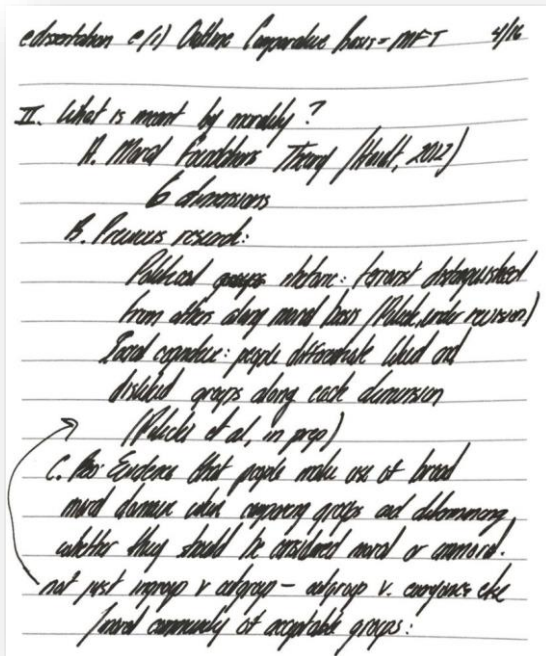 dissertation (1) Outline Comparative Basis = MFT 4/16
II. What is meant by morality?
A. Moral Foundations Theory (Haidt, 2012)
6 dimensions
B. Previous research:
Political rhetoric: terrorist distinguished
from others along moral basis (under revision)
Social cognition: people differentiate liked and
disliked groups along each dimension
(et al, in prep)
C. Evidence that people make use of broad
moral domain when comparing groups and determining
whether they should be considered moral or immoral.
not just ingroup v outgroup - outgroup v. everyone else
/moral community of acceptable groups: